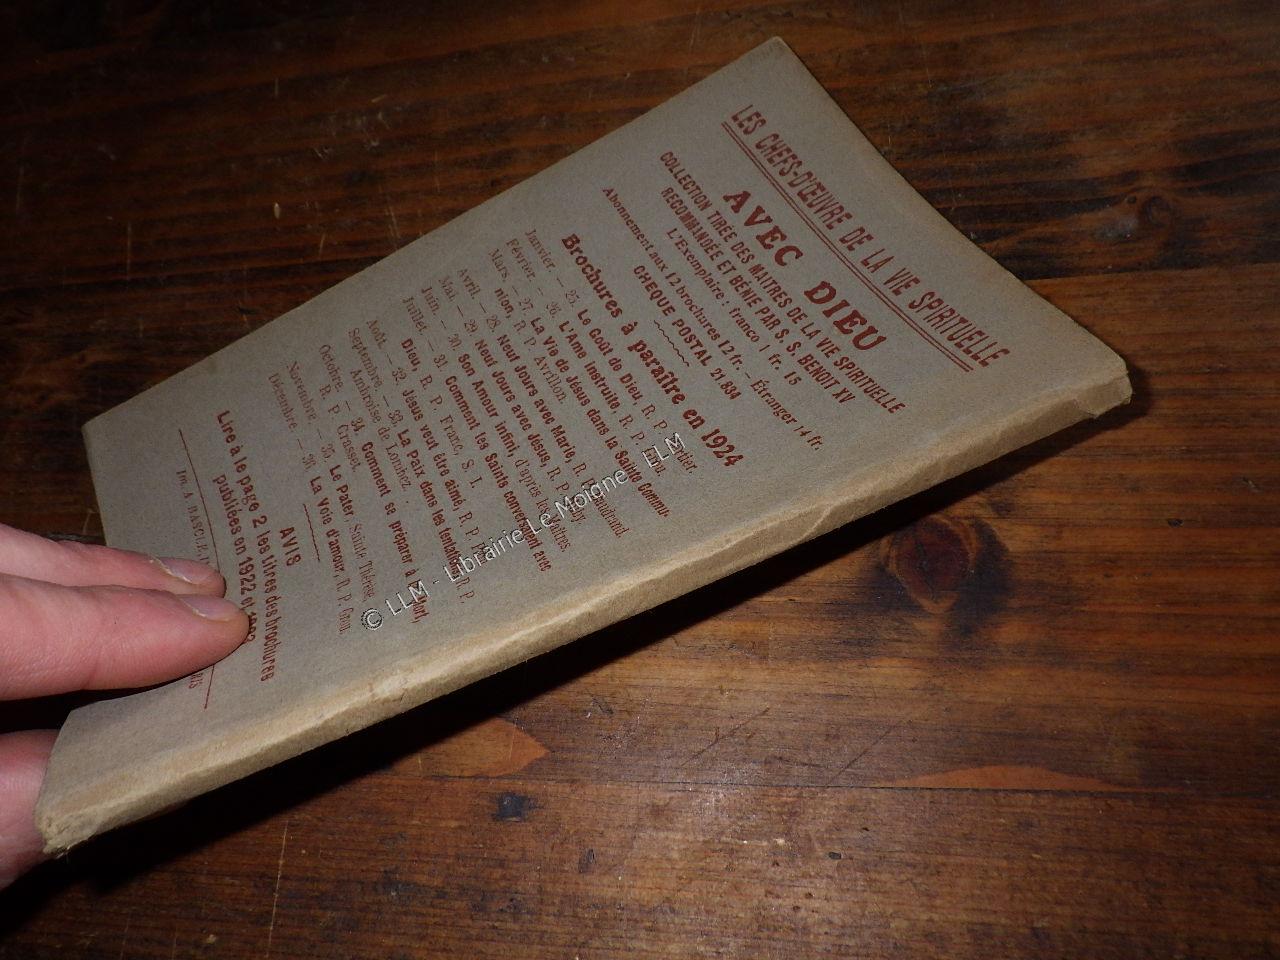 LES CHEFS-D'ŒUVRE DE LA VIE SPIRITUELLE
AVEC DIEU
COLLECTION TIRÉE DES MAITRES DE LA VIE SPIRITUELLE
RECOMMANDÉE ET BÉNIE PAR S. S. BENOIT XV
L'Exemplaire : franco 1 fr. 15
Abonnement aux 12 brochures 12 fr. — Étranger 14 fr.
CHEQUE POSTAL 21.834
Brochures à paraître en 1924
Janvier. — 25. Le Goût de Dieu, R. P.
Février. — 26. L'Ame instruite, R. P.
Mars. — 27. La Vie de Jésus dans la Sainte Commu-
nion, R. P. Avrillon.
Avril. — 28. Neuf Jours avec Marie, R.
Mai — 29. Neuf Jours avec Jésus, R. P.
Juin. — 30. Son Amour infini, d'après les
Juillet — 31. Comment les Saints conversaient avec
Dieu, R. P. Franc, S. I.
Août. — 32. Jésus veut être aimé, R. P.
Septembre. — 33. La Paix dans les tentations, R. P.
Ambroise de Lombez.
Octobre. — 34. Comment se préparer à la Mort,
R. P. Crasset.
Novembre. — 35. Le Pater, Sainte Thérèse.
Décembre. — 36. La Voie d'amour, R. P. Grou.
AVIS
Lire à le page 2, les titres des brochures
publiées en 1922 et
Im. A BASCLE,
© LLM - Librairie Le Moigne - ELM